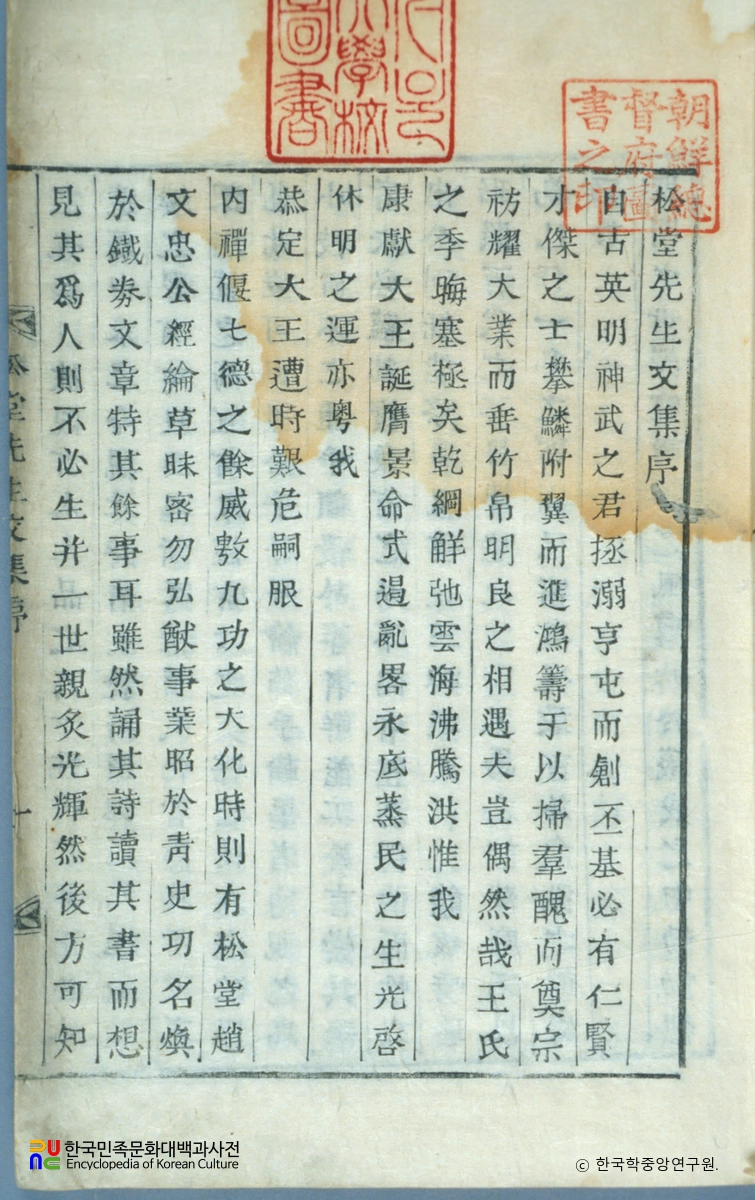 松堂先生文集序
自古英明神武之君拯溺亨屯而創丕基必有仁賢
才傑之士攀鱗附翼而進鴻籌于以掃羣醜而奠宗
祊耀大業而垂竹帛明良之相遇夫豈偶然哉王氏
之季晦塞極矣乾綱觧弛雲海沸騰洪惟我
康獻大王誕膺景命式遏亂畧永底蒸民之生光啓
休明之運亦粤我
恭定大王遭時艱危嗣服
內禪偃七德之餘威敷九功之大化時則有松堂趙
文忠公經綸草昧密勿弘猷事業昭於靑史功名煥
於鐵券文章特其餘事耳雖然誦其詩讀其書而想
見其爲人則不必生并一世親炙光輝然後方可知
松堂先生文集序
一
朝鮮總
督府圖
書之印
大學校
圖書
한국민족문화대백과사전
Encyclopedia of Korean Culture
ⓒ 한국학중앙연구원.